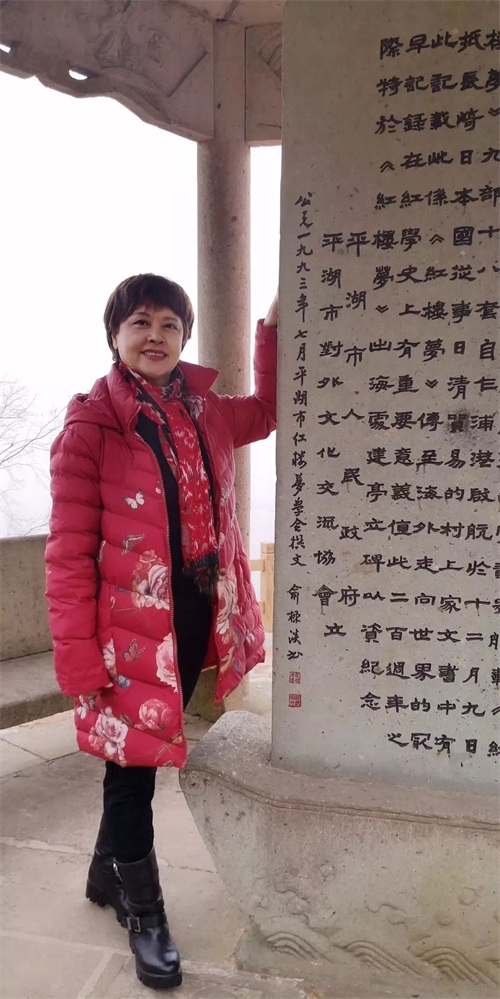 樓夢》九部十八套自乍浦港啟航於十二月九日
抵長崎日本國從事日清貿易的村上家文書中有
此記載此係《紅樓夢》傳至海外走向世界的最
早記錄在紅學史上有重要意義值此二百週年之
際特於《紅樓夢》出海處建亭立碑以資紀念
平湖市人民政府
平湖市對外文化交流協會立
公元一九九三年七月平湖市红楼夢學会撰文